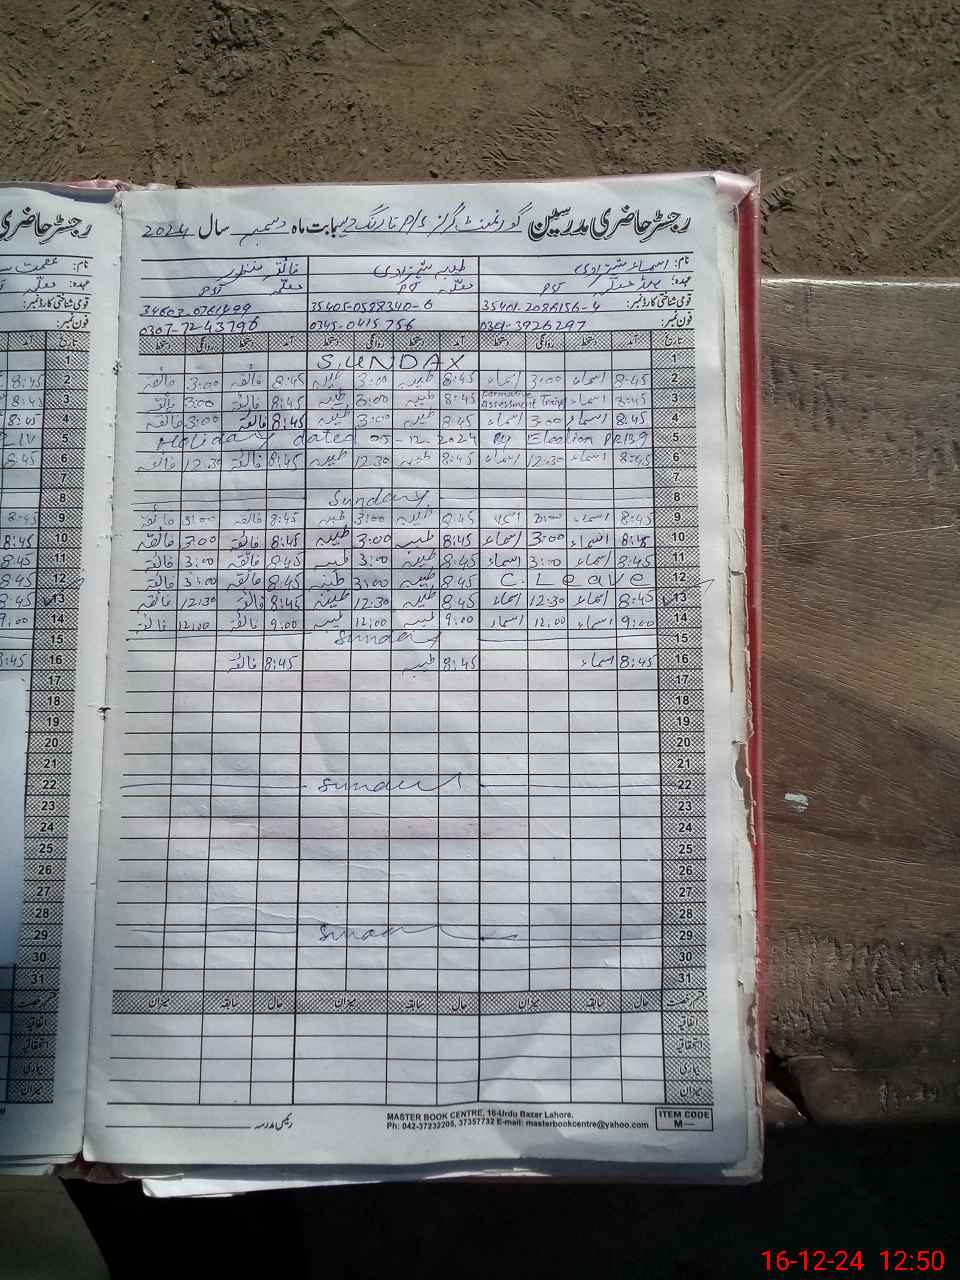 رجسٹر حاضری مدرسین گورنمنٹ گرلز P/S نارنگ بابت ماہ دسمبر سال 2024
نام: اسماء شہزادی طیبہ شہزادی فائقہ منظور
عہدہ: ہیڈ معلمہ PST معلمہ PST معلمہ PST
قومی شناختی کارڈ نمبر: 35401-2086156-4 35405-0598340-6
فون نمبر: 0345-0415756 0307-72-43796
تاریخ آمد دستخط روانگی دستخط آمد دستخط روانگی دستخط آمد دستخط روانگی دستخط
1 SUNDAY
2 8:45 اسماء 3:00 اسماء 8:45 طیبہ 3:00 طیبہ 8:45 فائقہ 3:00 فائقہ
3 8:45 اسماء Assessment 8:45 طیبہ 3:00 طیبہ 8:45 فائقہ 3:00 فائقہ
4 8:45 اسماء 3:00 اسماء 8:45 طیبہ 3:00 طیبہ 8:45 فائقہ 3:00 فائقہ
5 Holiday dated 05-12-2024 By Election PP139
6 8:45 اسماء 12:30 اسماء 8:45 طیبہ 12:30 طیبہ 8:45 فائقہ 12:30 فائقہ
7
8 Sunday
9 8:45 اسماء 3:00 اسماء 8:45 طیبہ 3:00 طیبہ 8:45 فائقہ 3:00 فائقہ
10 8:45 اسماء 3:00 اسماء 8:45 طیبہ 3:00 طیبہ 8:45 فائقہ 3:00 فائقہ
11 8:45 اسماء 3:00 اسماء 8:45 طیبہ 3:00 طیبہ 8:45 فائقہ 3:00 فائقہ
12 C. Leave 8:45 طیبہ 3:00 طیبہ 8:45 فائقہ 3:00 فائقہ
13 8:45 اسماء 12:30 اسماء 8:45 طیبہ 12:30 طیبہ 8:45 فائقہ 12:30 فائقہ
14 9:00 اسماء 12:00 اسماء 9:00 طیبہ 12:00 طیبہ 9:00 فائقہ 12:00 فائقہ
15 Sunday
16 8:45 اسماء 8:45 طیبہ 8:45 فائقہ
17
18
19
20
21
22 Sunday
23
24
25
26
27
28
29 Sunday
30
31
قسم رخصت حال سابقہ میزان حال سابقہ میزان حال سابقہ میزان
اتفاقیہ
استحقاقیہ
بیماری
میزان
رئیس مدرسہ
MASTER BOOK CENTRE, 16-Urdu Bazar Lahore.
Ph: 042-37232205, 37357732 E-mail: masterbookcentre@yahoo.com
ITEM CODE
M—
16-12-24 12:50